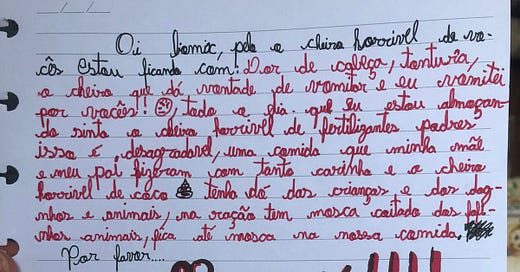 Oi Biomix, pelo o cheiro horrivel de vo-
cês estou ficando com: Dor de cabeça, tontura,
o cheiro que dá vontade de vomitar e eu vomitei
por vocês! todo o dia que eu estou almoçan-
do sinto o cheiro horrivel de fertilizantes podres
isso é desagradável, uma comida que minha mãe
e meu pai fizeram com tanto carinho e o cheiro
horrivel de coco tenha dó das crianças e dos dog-
nhos e animais, na ração tem mosca coitado dos
nhos animais, fica até mosca na nossa comida.
Por favor....